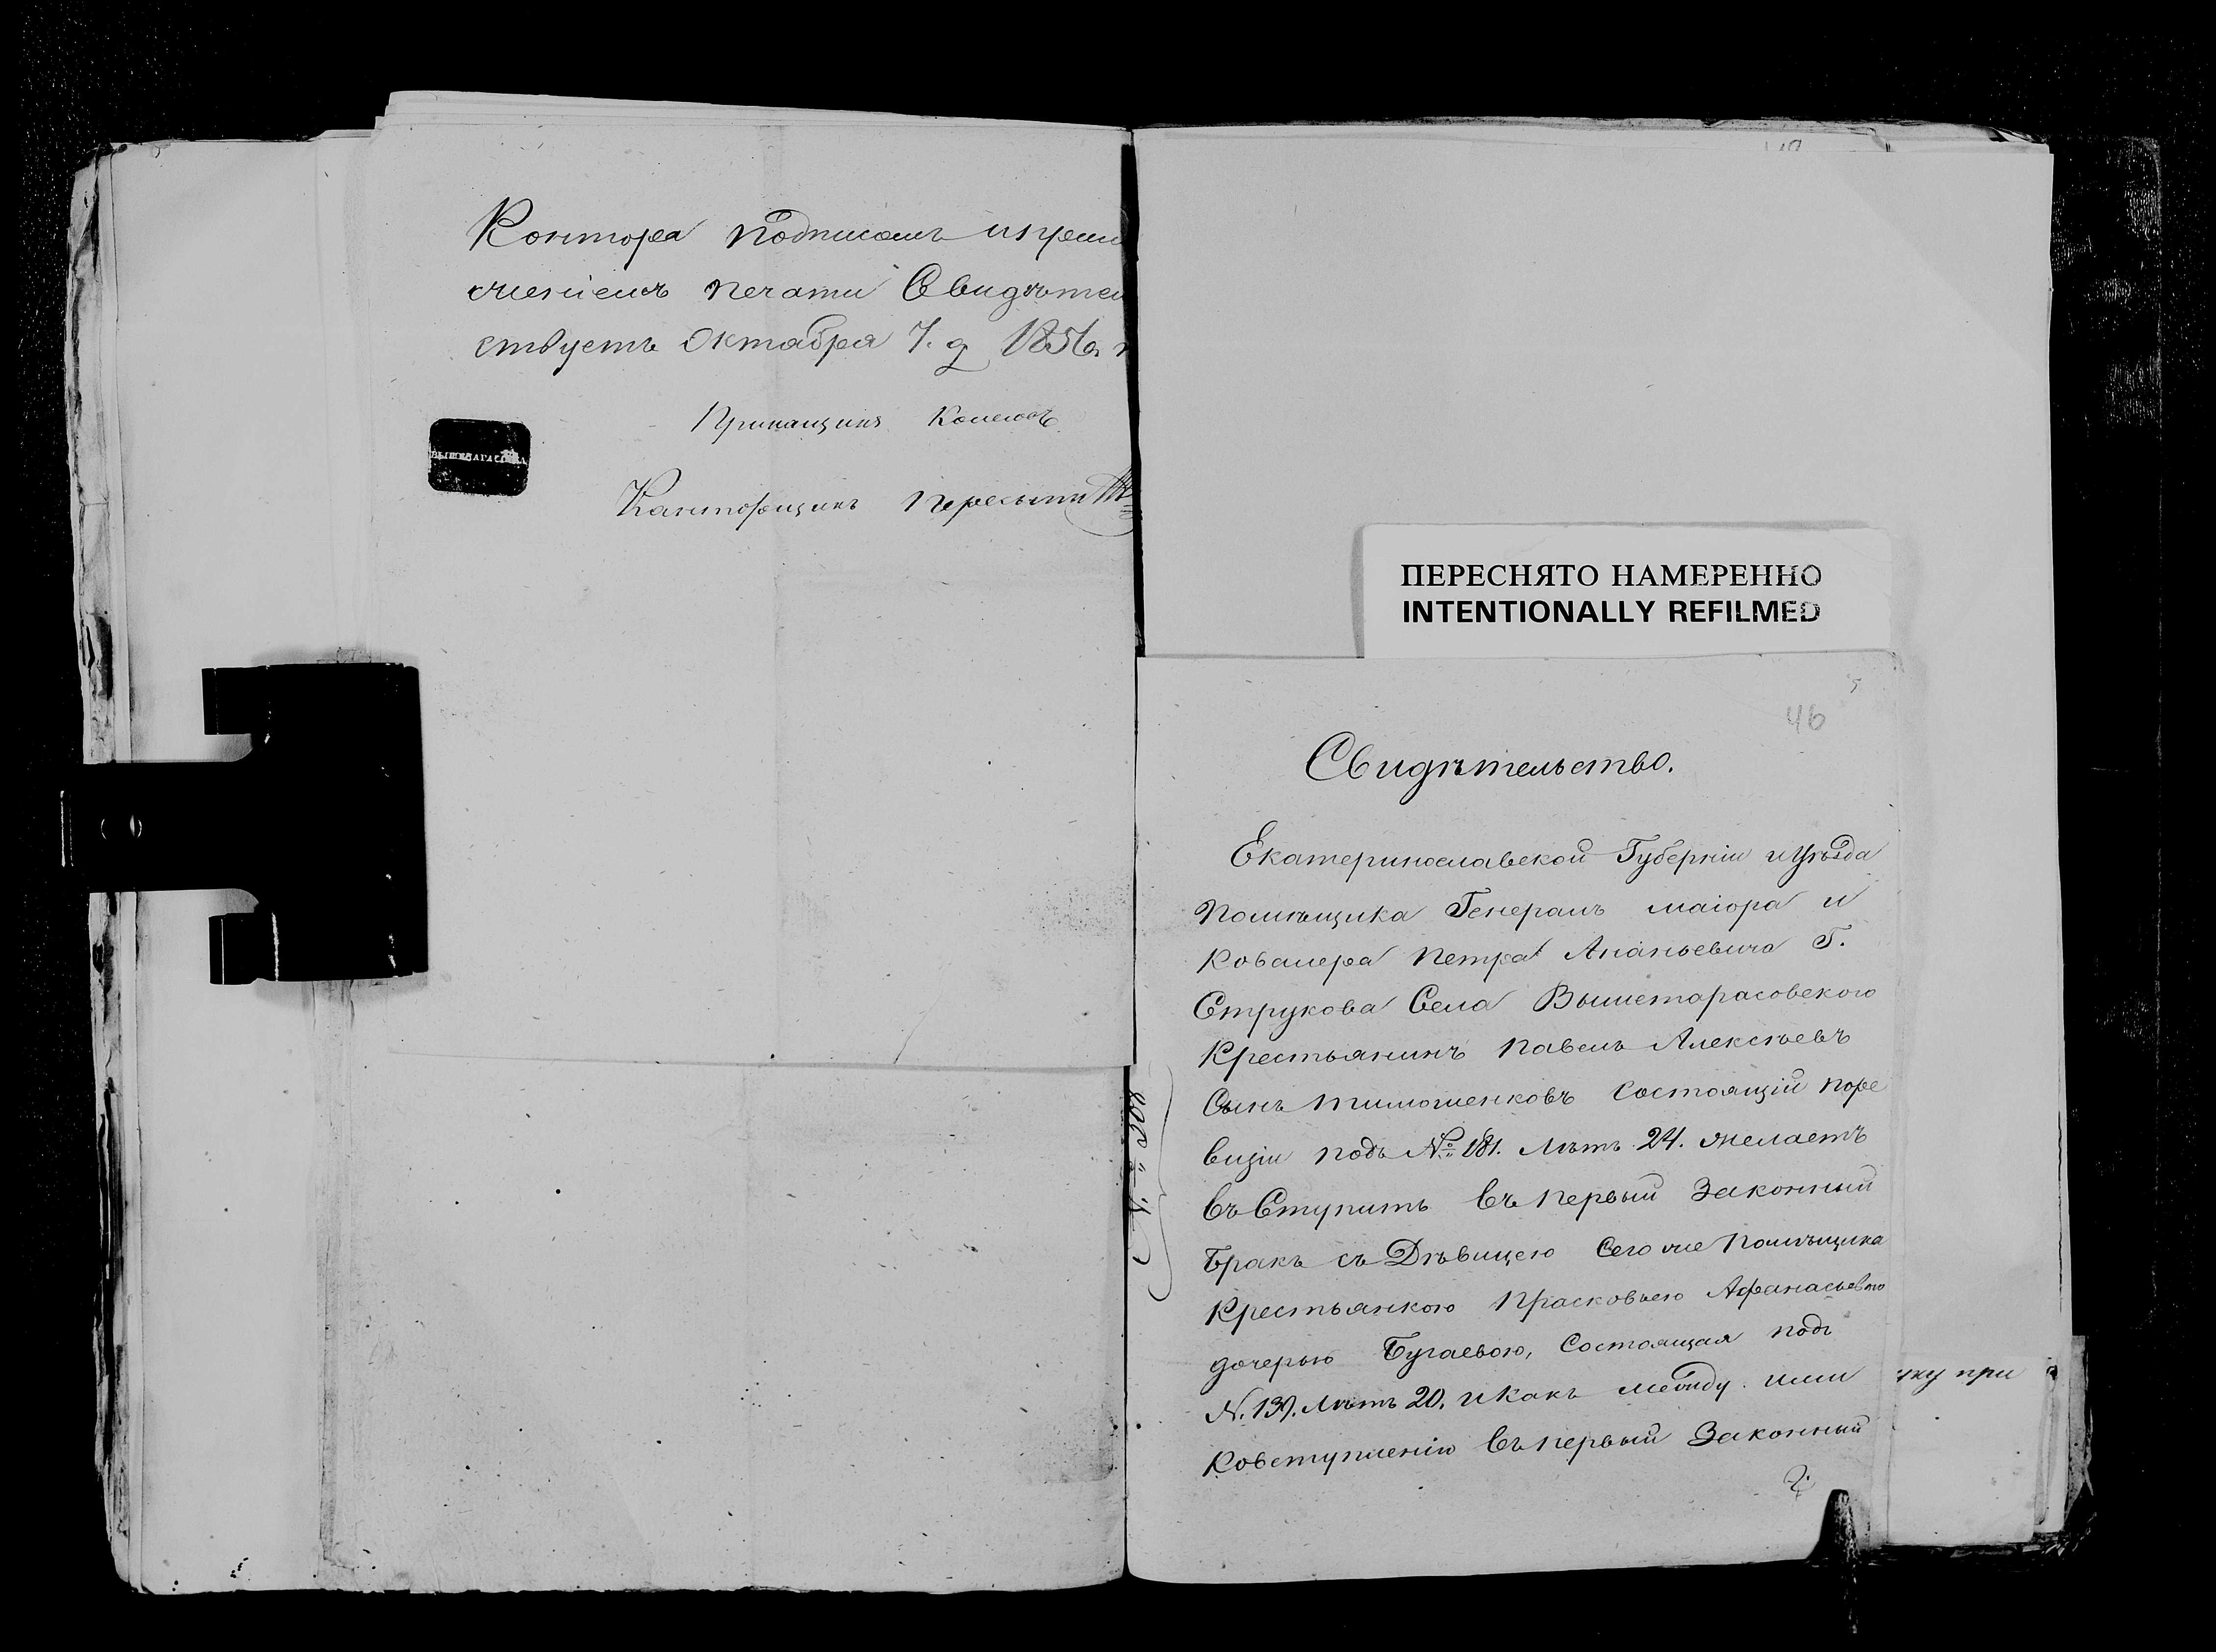 Контора подписомъ и прило
женіемъ печати Свидѣтель
ствуетъ Октября 7. д 1856 г
Прикащикъ
Канторщикъ Пересыпк
ПЕРЕСНЯТО НАМЕРЕННО
INTENTIONALLY REFILMED
46
Свидѣтельство.
Екатеринославской Губерніи и Уѣзда
помѣщика Генералъ маіора и
Ковалера Петра Ананьевича Г.
Струкова Села Вышетарасовского
Крестьянинъ Павелъ Алексѣевъ
Сынъ Тимошенковъ состоящій поре
визіи подъ № 181. Лѣтъ 24. желаетъ
въ Ступить въ первый Законный
бракъ съ Дѣвицею Сего же помѣщика
Крестьянкою Прасковьею Афанасьевою
дочерью Бугаевою, Состоящая подъ
N. 139. Лѣтъ 20. и какъ между ими
ковступленію въ первый Законный
ку при